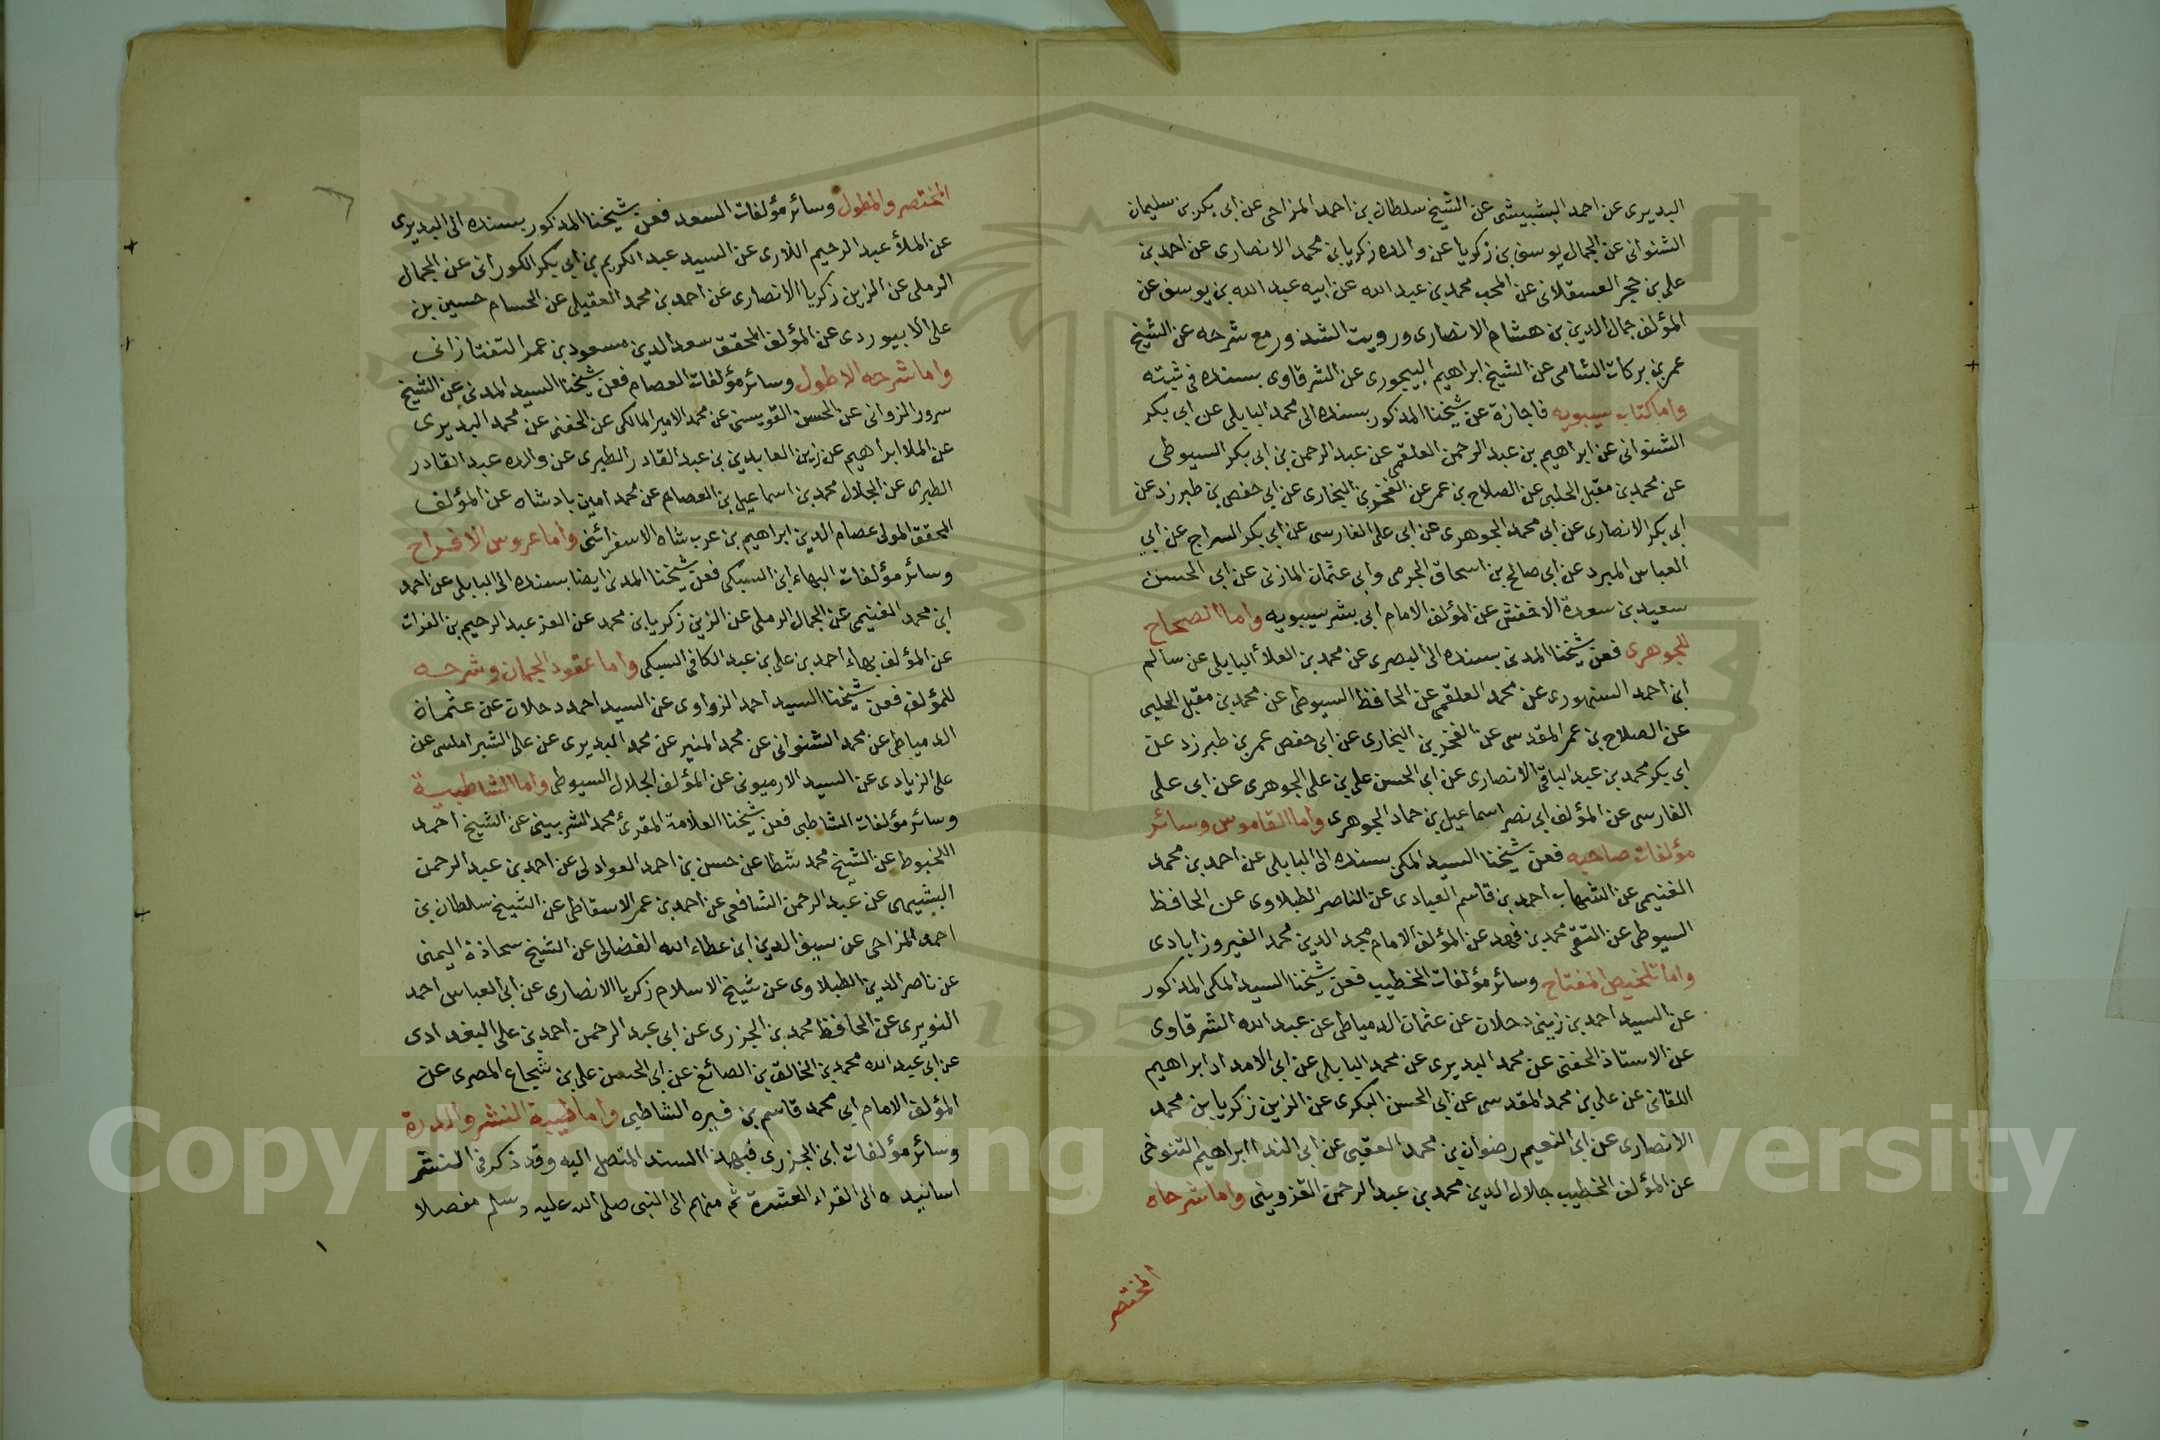 البديرى عن احمد البشبيشى عن الشيخ سلطان بن احمد المزاحى عن ابى بكر بن سليمان
الشنوانى عن الجمال يوسف بن زكريا عن والده زكريا بن محمد الانصارى عن احمد بن
على بن حجر العسقلانى عن المحب محمد بن عبد الله عن ابيه عبد الله بن يوسف عن
المؤلف جمال الدين بن هشام الانصارى ورويت الشذور مع شرحه عن الشيخ
عمر بن بركات الشامى عن الشيخ ابراهيم البيجورى عن الشرقاوى بسنده فى ثبته
واما كتاب سيبويه فاجازة عن شيخنا المذكور بسنده الى محمد البابلى عن ابى بكر
الشنوانى عن ابراهيم بن عبد الرحمن العلقمى عن عبد الرحمن بن ابى بكر السيوطى
عن محمد بن مقبل الحلبى عن الصلاح بن عمر عن الفخر بن البخارى عن ابى حفص بن طبرزد عن
ابى بكر الانصارى عن ابى محمد الجوهرى عن ابى على الفارسى عن ابى بكر السراج عن ابى
العباس المبرد عن ابى صالح بن اسحاق الجرمى وابى عثمان المازنى عن ابى الحسن
سعيد بن سعدة الاخفش عن المؤلف الامام ابى بشر سيبويه واما الصحاح
للجوهرى فعن شيخنا المدنى بسنده الى البصرى عن محمد بن العلاء البابلى عن سالم
ابن احمد السنهورى عن محمد العلقمى عن الحافظ السيوطى عن محمد بن مقبل الحلبى
عن الصلاح بن عمر المقدسى عن الفخر بن البخارى عن ابى حفص عمر بن طبرزد عن
ابى بكر محمد بن عبد الباقى الانصارى عن ابى الحسن على بن على الجوهرى عن ابى على
الفارسى عن المؤلف ابى نصر اسماعيل بن حماد الجوهرى واما القاموس وسائر
مؤلفات صاحبه فعن شيخنا السيد المكى بسنده الى البابلى عن احمد بن محمد
الغنيمى عن الشهاب احمد بن قاسم العبادى عن الناصر الطبلاوى عن الحافظ
السيوطى عن التقى محمد بن فهد عن المؤلف الامام مجد الدين محمد الفيروزابادى
واما تلخيص المفتاح وسائر مؤلفات الخطيب فعن شيخنا السيد المكى المذكور
عن السيد احمد بن زينى دحلان عن عثمان الدمياطى عن عبد الله الشرقاوى
عن الاستاذ الحفنى عن محمد البديرى عن محمد البابلى عن ابى الامداد ابراهيم
اللقانى عن على بن محمد المقدسى عن ابى الحسن البكرى عن الزين زكريا بن محمد
الانصارى عن ابى النعيم رضوان بن محمد العقبى عن ابى الندا ابراهيم التنوخى
عن المؤلف الخطيب جلال الدين محمد بن عبد الرحمن القزوينى واما شرحاه
المختصر
المختصر والمطول وسائر مؤلفات السعد فعن شيخنا المذكور بسنده الى البديرى
عن الملاؤ عبد الرحيم اللارى عن السيد عبد الكريم بن ابى بكر الكورانى عن الجمال
الرملى عن الزين زكريا الانصارى عن احمد بن محمد العقيلى عن الحسام حسين بن
على الابيوردى عن المؤلف المحقق سعد الدين مسعود بن عمر التفتازانى
واما شرحه الاطول وسائر مؤلفات العصام فعن شيخنا السيد المدنى عن الشيخ
سرور الزوانى عن الحسن القويسنى عن محمد الامير المالكى عن الحفنى عن محمد البديرى
عن الملا ابراهيم عن زين العابدين بن عبد القادر الطبرى عن والده عبد القادر
الطبرى عن الجلال محمد بن اسماعيل بن العصام عن محمد امين بادشاه عن المؤلف
المحقق المولى عصام الدين ابراهيم بن عرب شاه الاسفرائنى واما عروس الافراح
وسائر مؤلفات البهاء ابن السبكى فعن شيخنا المدنى ايضا بسنده الى البابلى عن احمد
ابن محمد الغنيمى عن الجمال الرملى عن الزين زكريا بن محمد عن العز عبد الرحيم بن الفرات
عن المؤلف بهاء احمد بن على بن عبد الكافى السبكى واما عقود الجمان وشرحه
للمؤلف فعن شيخنا السيد احمد الزواوى عن السيد احمد دحلان عن عثمان
الدمياطى عن محمد الشنوانى عن محمد المنير عن محمد البديرى عن على الشبراملسى عن
على الزيادى عن السيد الارميونى عن المؤلف الجلال السيوطى واما الشاطبية
وسائر مؤلفات الشاطبى فعن شيخنا العلامة المقرئ محمد الشربينى عن الشيخ احمد
اللخبوط عن الشيخ محمد شطا عن حسن بن احمد العوادلى عن احمد بن عبد الرحمن
البشيهى عن عبد الرحمن الشافعى عن احمد بن عمر الاسقاطى عن الشيخ سلطان بن
احمد المزاحى عن سيف الدين ابن عطاء الله الفضالى عن الشيخ سحاذة اليمنى
عن ناصر الدين الطبلاوى عن شيخ الاسلام زكريا الانصارى عن ابى العباس احمد
النويرى عن الحافظ محمد بن الجزرى عن ابى عبد الرحمن احمد بن على البغدادى
عن ابى عبد الله محمد بن الخالق بن الصائغ عن ابى الحسن على بن شجاع المصرى عن
المؤلف الامام ابى محمد قاسم بن فيره الشاطبى واما طيبة النشر والدرة
وسائر مؤلفات ابن الجزرى فبهذا السند المتصل اليه وقد ذكر فى النشر
اسانيده الى القراء العشرة ثم منهم الى النبى صلى الله عليه وسلم مفصلا
Copyright © King Saud University
195